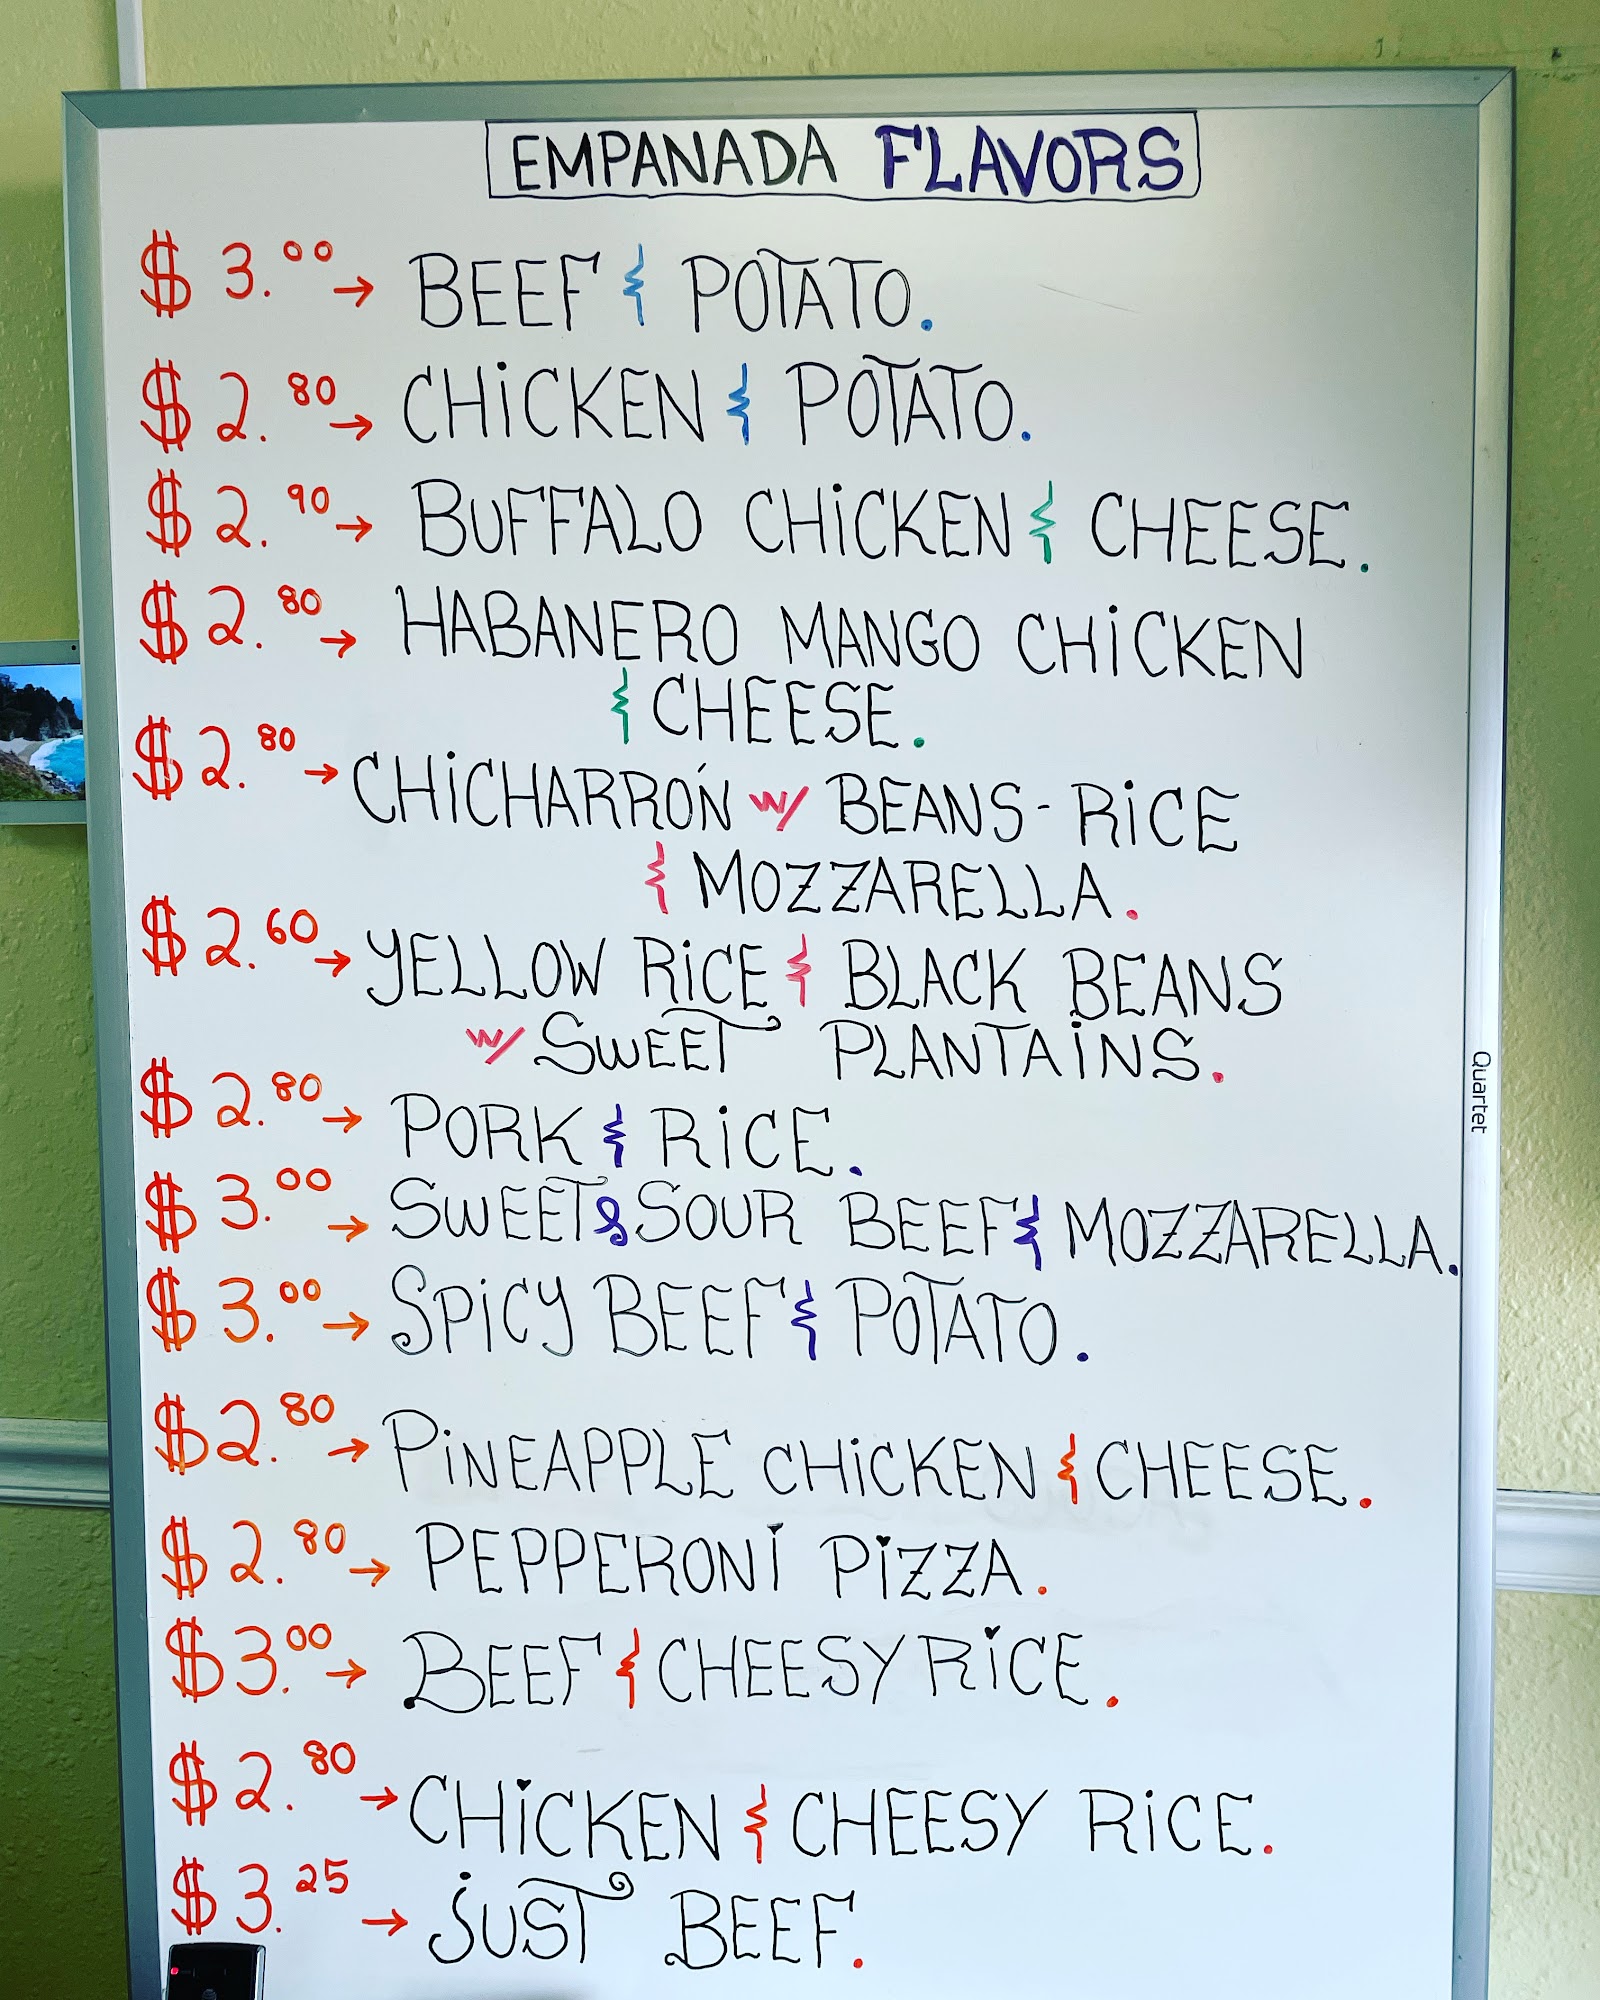 EMPANADA FLAVORS
$ 3.00 → BEEF & POTATO.
$ 2.80 → CHiCKEN & POTATO.
$ 2.90 → BUFFALO CHiCKEN & CHEESE.
$ 2.80 → HABANERO MANGO CHiCKEN
& CHEESE.
$ 2.80 → CHiCHARRÓN w/ BEANS - RiCE
& MOZZARELLA.
$ 2.60 → YELLOW RiCE & BLACK BEANS
w/ SWEET PLANTAiNS.
$ 2.80 → PORK & RiCE.
$ 3.00 → SWEET & SOUR BEEF & MOZZARELLA.
$ 3.00 → SPiCY BEEF & POTATO.
$ 2.80 → PiNEAPPLE CHiCKEN & CHEESE.
$ 2.80 → PEPPERONi PiZZA.
$ 3.00 → BEEF & CHEESY RiCE.
$ 2.80 → CHiCKEN & CHEESY RiCE.
$ 3.25 → jUST BEEF.
Quartet